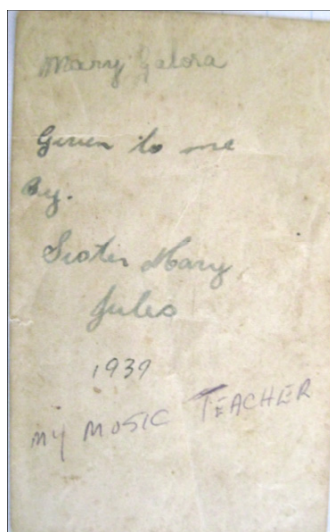 Mary Galora
Given to me
By.
Sister Mary
Jules
1939
MY MUSIC TEACHER